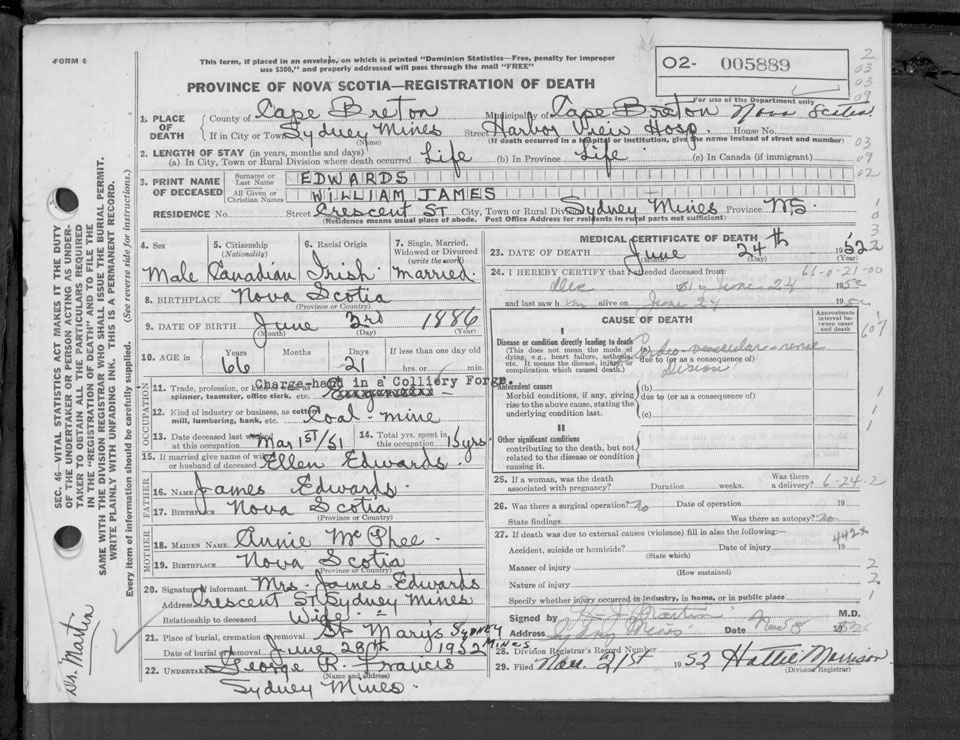 FORM 6
This form, if placed in an envelope, on which is printed "Dominion Statistics—Free, penalty for improper
use $300," and properly addressed will pass through the mail "FREE"
PROVINCE OF NOVA SCOTIA—REGISTRATION OF DEATH
O2- 005889
For use of the Department only
1. PLACE OF DEATH County of Cape Breton Municipality of Cape Breton Nova Scotia
If in City or Town Sydney Mines (Name) Street Harbor View Hosp. House No.
(If death occurred in a hospital or institution, give the name instead of street and number)
2. LENGTH OF STAY (in years, months and days)
(a) In City, Town or Rural Division where death occurred Life (b) In Province Life (c) In Canada (if immigrant)
3. PRINT NAME OF DECEASED Surname or Last Name EDWARDS
All Given or Christian Names WILLIAM JAMES
RESIDENCE No. Street Crescent St City, Town or Rural Division Sydney Mines Province N.S.
(Residence means usual place of abode. Post Office Address for residents in rural parts not sufficient)
4. Sex Male
5. Citizenship (Nationality) Canadian
6. Racial Origin Irish
7. Single, Married, Widowed or Divorced (write the word) Married.
8. BIRTHPLACE Nova Scotia
(Province or Country)
9. DATE OF BIRTH June 3rd 1886
(Month) (Day) (Year)
10. AGE in Years 66 Months Days 21 If less than one day old hrs. or min.
OCCUPATION
11. Trade, profession, or kind of work as spinner, teamster, office clerk, etc. Charge-hand in a Colliery Forge.
12. Kind of industry or business, as cotton mill, lumbering, bank, etc. Coal-mine
13. Date deceased last worked at this occupation Mar 1st/51 14. Total yrs. spent in this occupation 15 yrs.
15. If married give name of wife or husband of deceased Ellen Edwards.
FATHER
16. Name James Edwards.
17. Birthplace Nova Scotia
(Province or Country)
MOTHER
18. Maiden Name Annie McPhee.
19. Birthplace Nova Scotia
(Province or Country)
20. Signature of informant Mrs. James Edwards
Address Crescent St. Sydney Mines
Relationship to deceased Wife.
21. Place of burial, cremation or removal St Mary's Sydney Mines
Date of burial or removal June 28th 1952
22. Undertaker George R. Francis
(Name and address)
Sydney Mines.
MEDICAL CERTIFICATE OF DEATH
23. DATE OF DEATH June 24th 1952
(Month) (Day) (Year)
24. I HEREBY CERTIFY that I attended deceased from:
Dec 1951 to June 24 1952
and last saw him alive on June 24 1952
CAUSE OF DEATH
Approximate interval between onset and death
I
Disease or condition directly leading to death
(This does not mean the mode of dying, e.g., heart failure, asthenia, etc. It means the disease, injury, or complication which caused death.)
due to (or as a consequence of)
Antecedent causes
Morbid conditions, if any, giving rise to the above cause, stating the underlying condition last.
(b)
due to (or as a consequence of)
(c)
II
Other significant conditions
contributing to the death, but not related to the disease or condition causing it.
25. If a woman, was the death associated with pregnancy? Duration weeks. Was there a delivery? 6-24-2
26. Was there a surgical operation? No Date of operation 19
State findings Was there an autopsy? No
27. If death was due to external causes (violence) fill in also the following:— 442x
Accident, suicide or homicide? Date of injury 19
(State which)
Manner of injury
(How sustained)
Nature of injury
Specify whether injury occurred in industry, in home, or in public place
Signed by Martin M.D.
Address Sydney Mines Date Nov 8 1952
28. Division Registrar's Record Number
29. Filed Nov. 21st 1952 Hattie Morrison
(Division Registrar)
SEC. 46—VITAL STATISTICS ACT MAKES IT THE DUTY
OF THE UNDERTAKER OR PERSON ACTING AS UNDER-
TAKER TO OBTAIN ALL THE PARTICULARS REQUIRED
IN THE "REGISTRATION OF DEATH" AND TO FILE THE
SAME WITH THE DIVISION REGISTRAR WHO SHALL ISSUE THE BURIAL PERMIT.
WRITE PLAINLY WITH UNFADING INK. THIS IS A PERMANENT RECORD.
Every item of information should be carefully supplied. (See reverse side for instructions.)
Dr. Martin